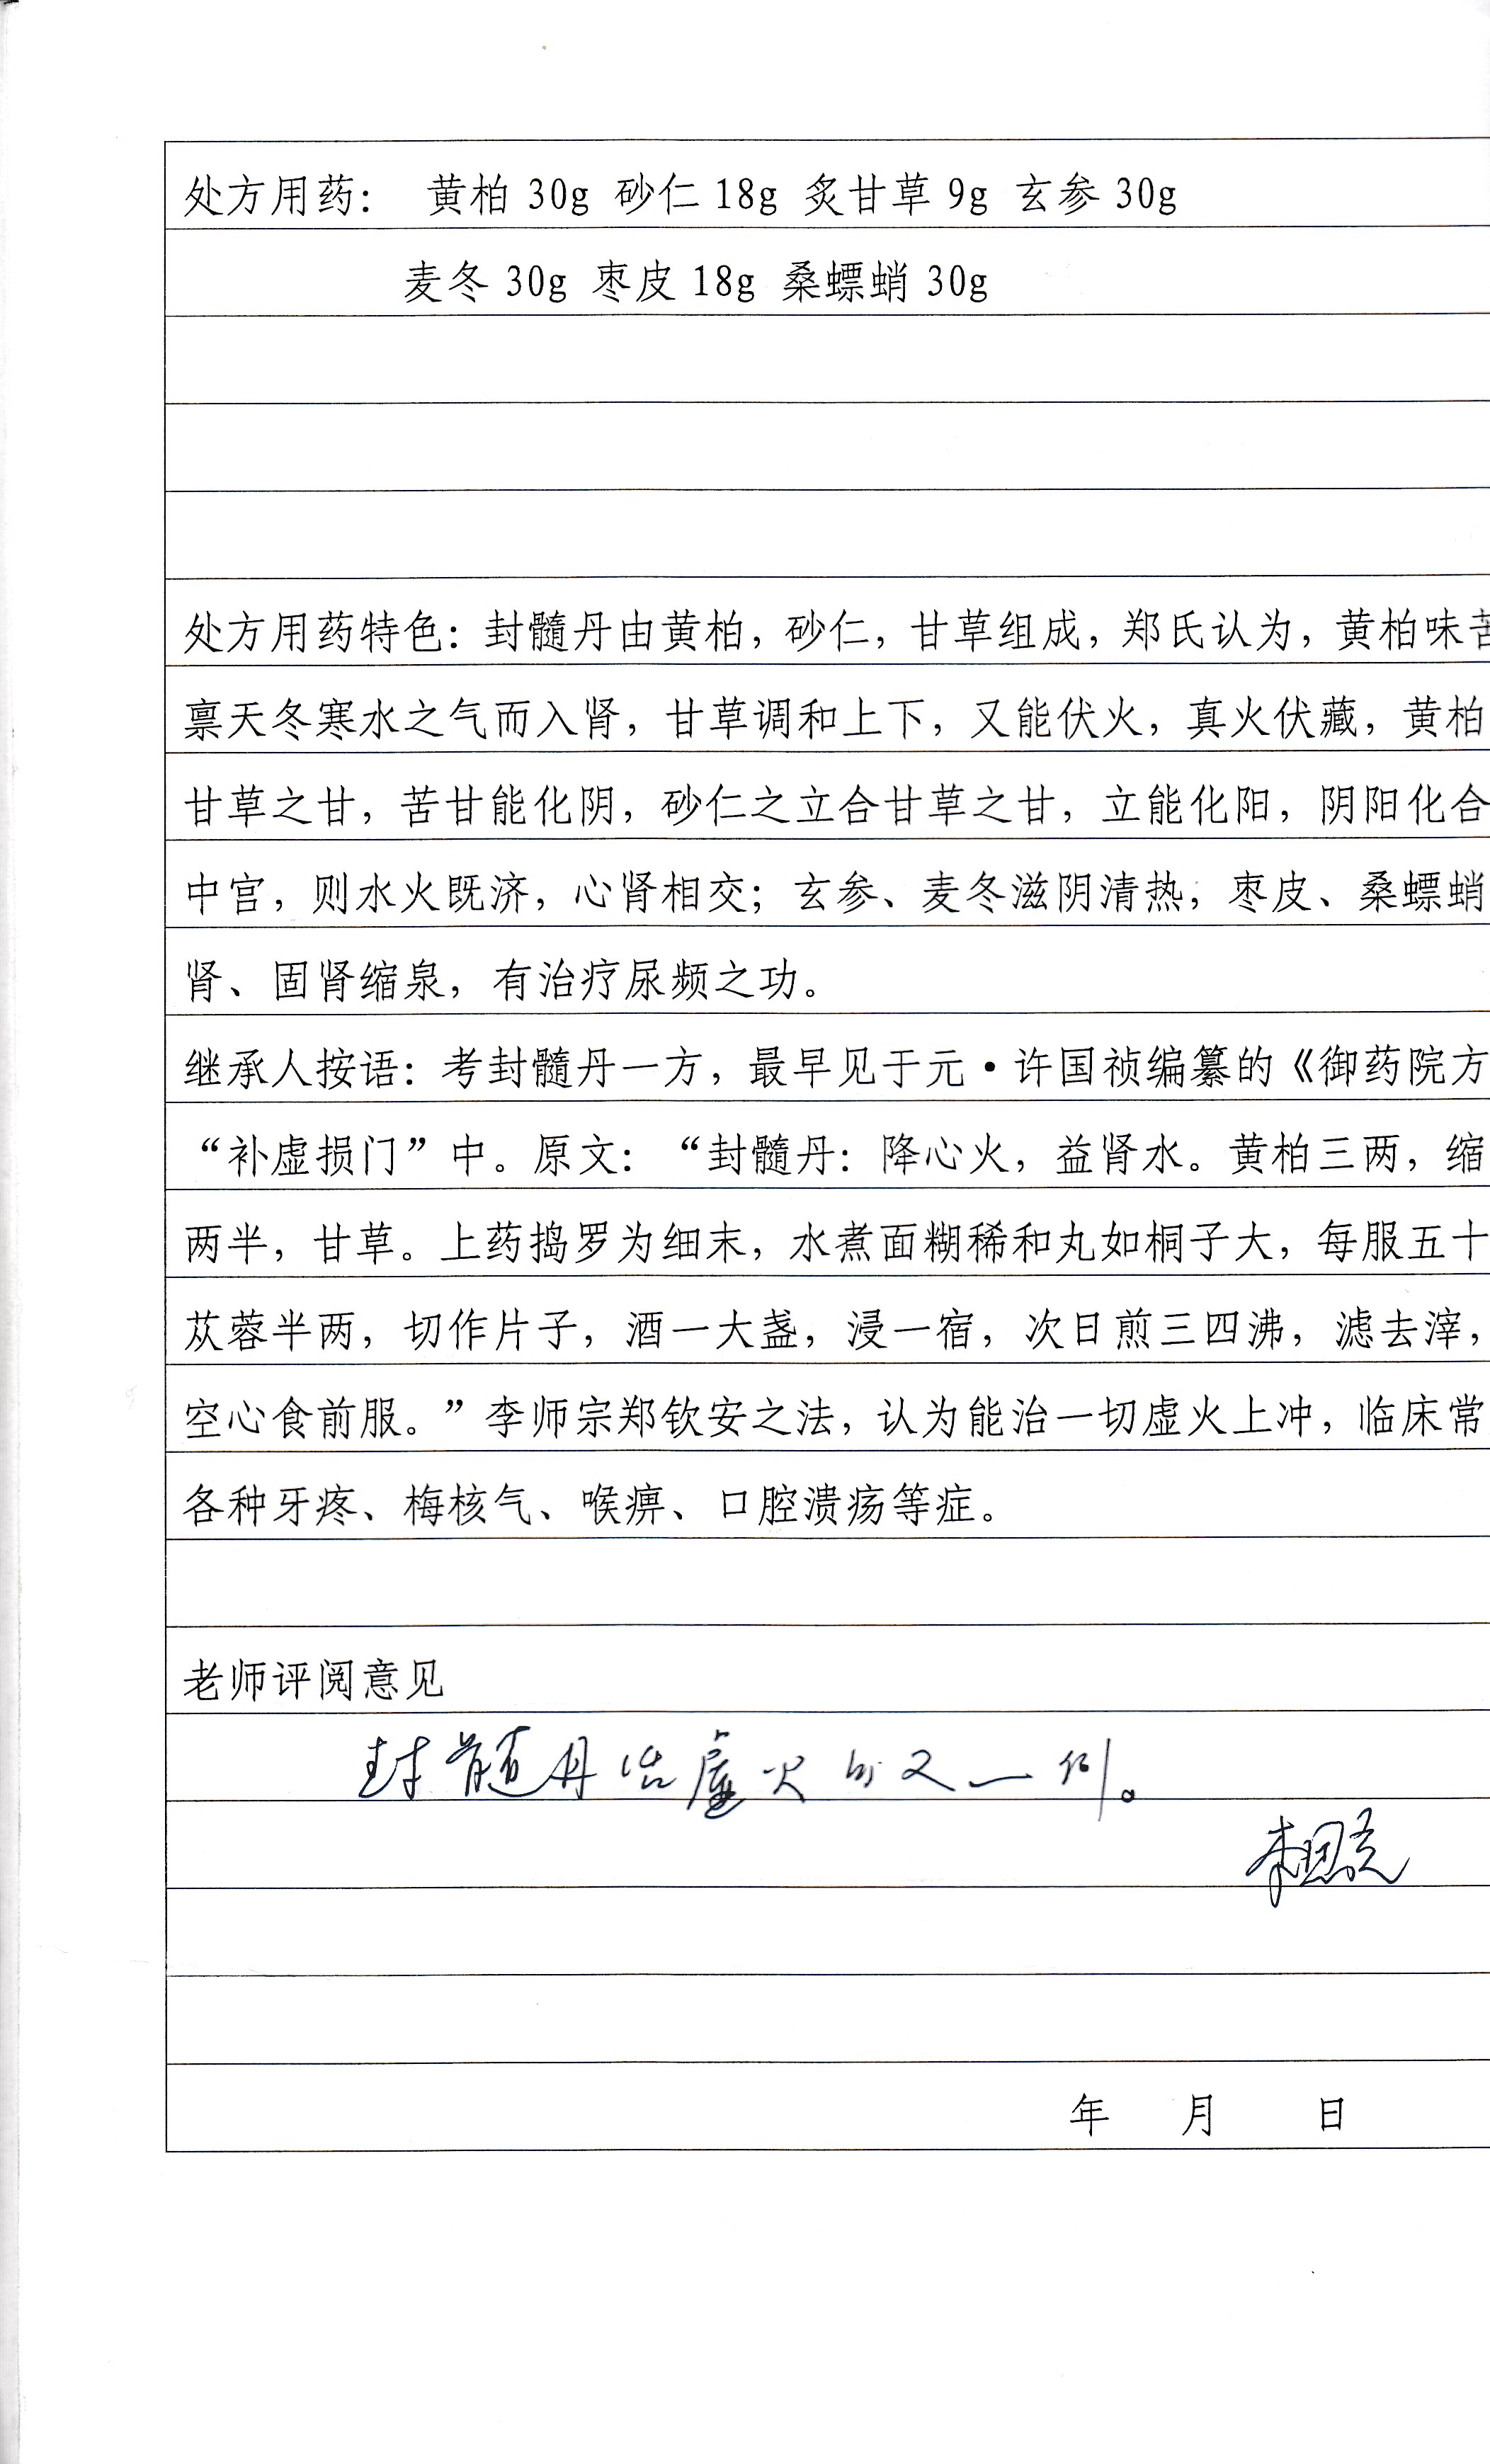 处方用药： 黄柏 30g 砂仁 18g 炙甘草 9g 玄参 30g
麦冬 30g 枣皮 18g 桑螵蛸 30g
处方用药特色：封髓丹由黄柏，砂仁，甘草组成，郑氏认为，黄柏味苦
禀天冬寒水之气而入肾，甘草调和上下，又能伏火，真火伏藏，黄柏
甘草之甘，苦甘能化阴，砂仁之立合甘草之甘，立能化阳，阴阳化合
中宫，则水火既济，心肾相交；玄参、麦冬滋阴清热，枣皮、桑螵蛸
肾、固肾缩泉，有治疗尿频之功。
继承人按语：考封髓丹一方，最早见于元·许国祯编纂的《御药院方
“补虚损门”中。原文：“封髓丹：降心火，益肾水。黄柏三两，缩
两半，甘草。上药捣罗为细末，水煮面糊稀和丸如桐子大，每服五十
苁蓉半两，切作片子，酒一大盏，浸一宿，次日煎三四沸，滤去滓，
空心食前服。”李师宗郑钦安之法，认为能治一切虚火上冲，临床常
各种牙疼、梅核气、喉痹、口腔溃疡等症。
老师评阅意见
封髓丹治虚火的又一例。
年 月 日